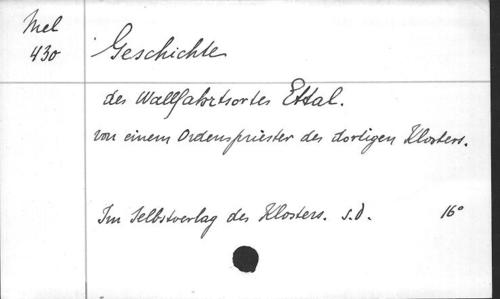 Mel
430
Geschichte
des Wallfahrtsortes Ettal.
von einem Ordenspriester des dortigen Klosters.
Im Selbstverlag des Klosters. s.d. 16°